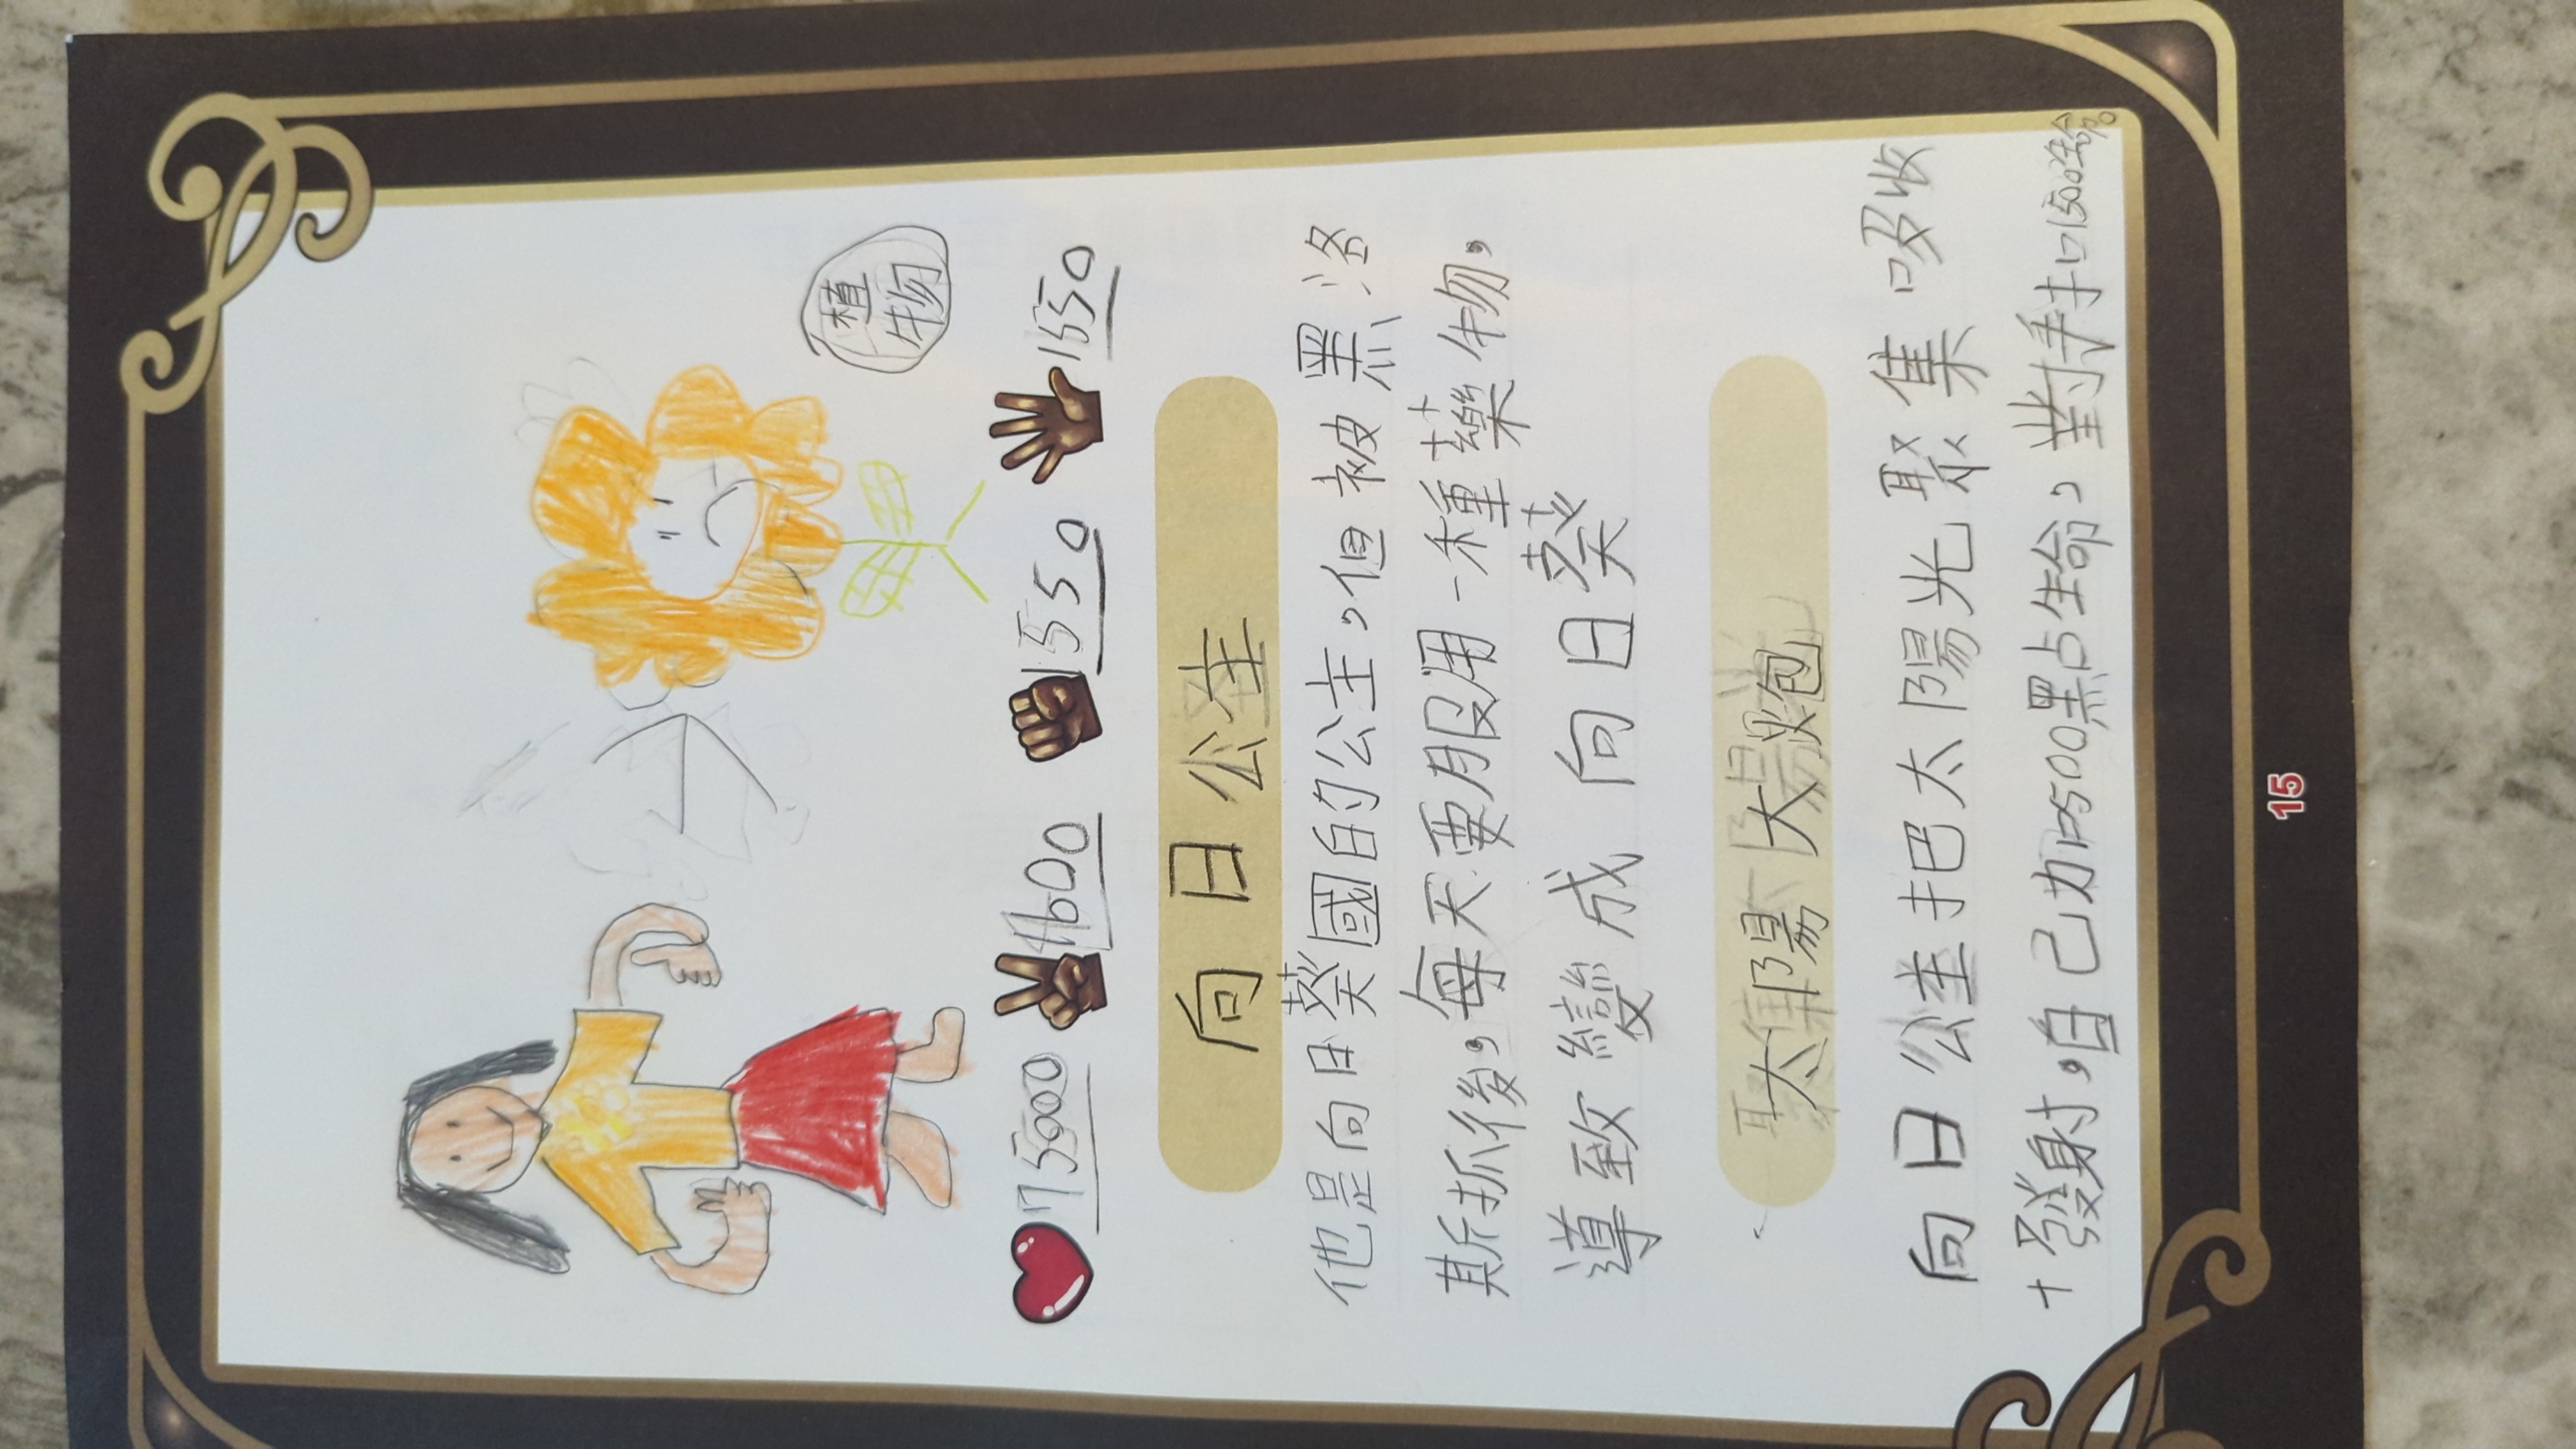 植
物
15000 1600 1550 1550
向日公主
他是向日葵國的公主,但被黑洛
斯抓後,每天要服用一種藥物,
導致變成向日葵
太陽大炮
向日公主把太陽光聚集吸收
+發射,自己加500黑占生命,對手扣1500生命。
15